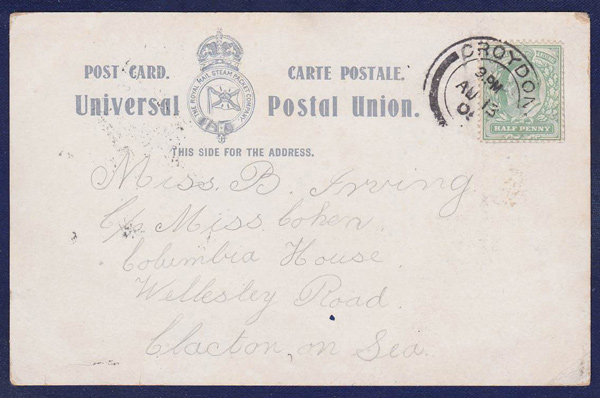 POST CARD. CARTE POSTALE.
THE ROYAL MAIL STEAM PACKET COMPANY
Universal Postal Union.
THIS SIDE FOR THE ADDRESS.
CROYDON
3 PM
AU 13
HALF PENNY
Miss. B. Irving
C/o Miss. Cohen.
Columbia House.
Wellesley Road.
Clacton, on Sea.